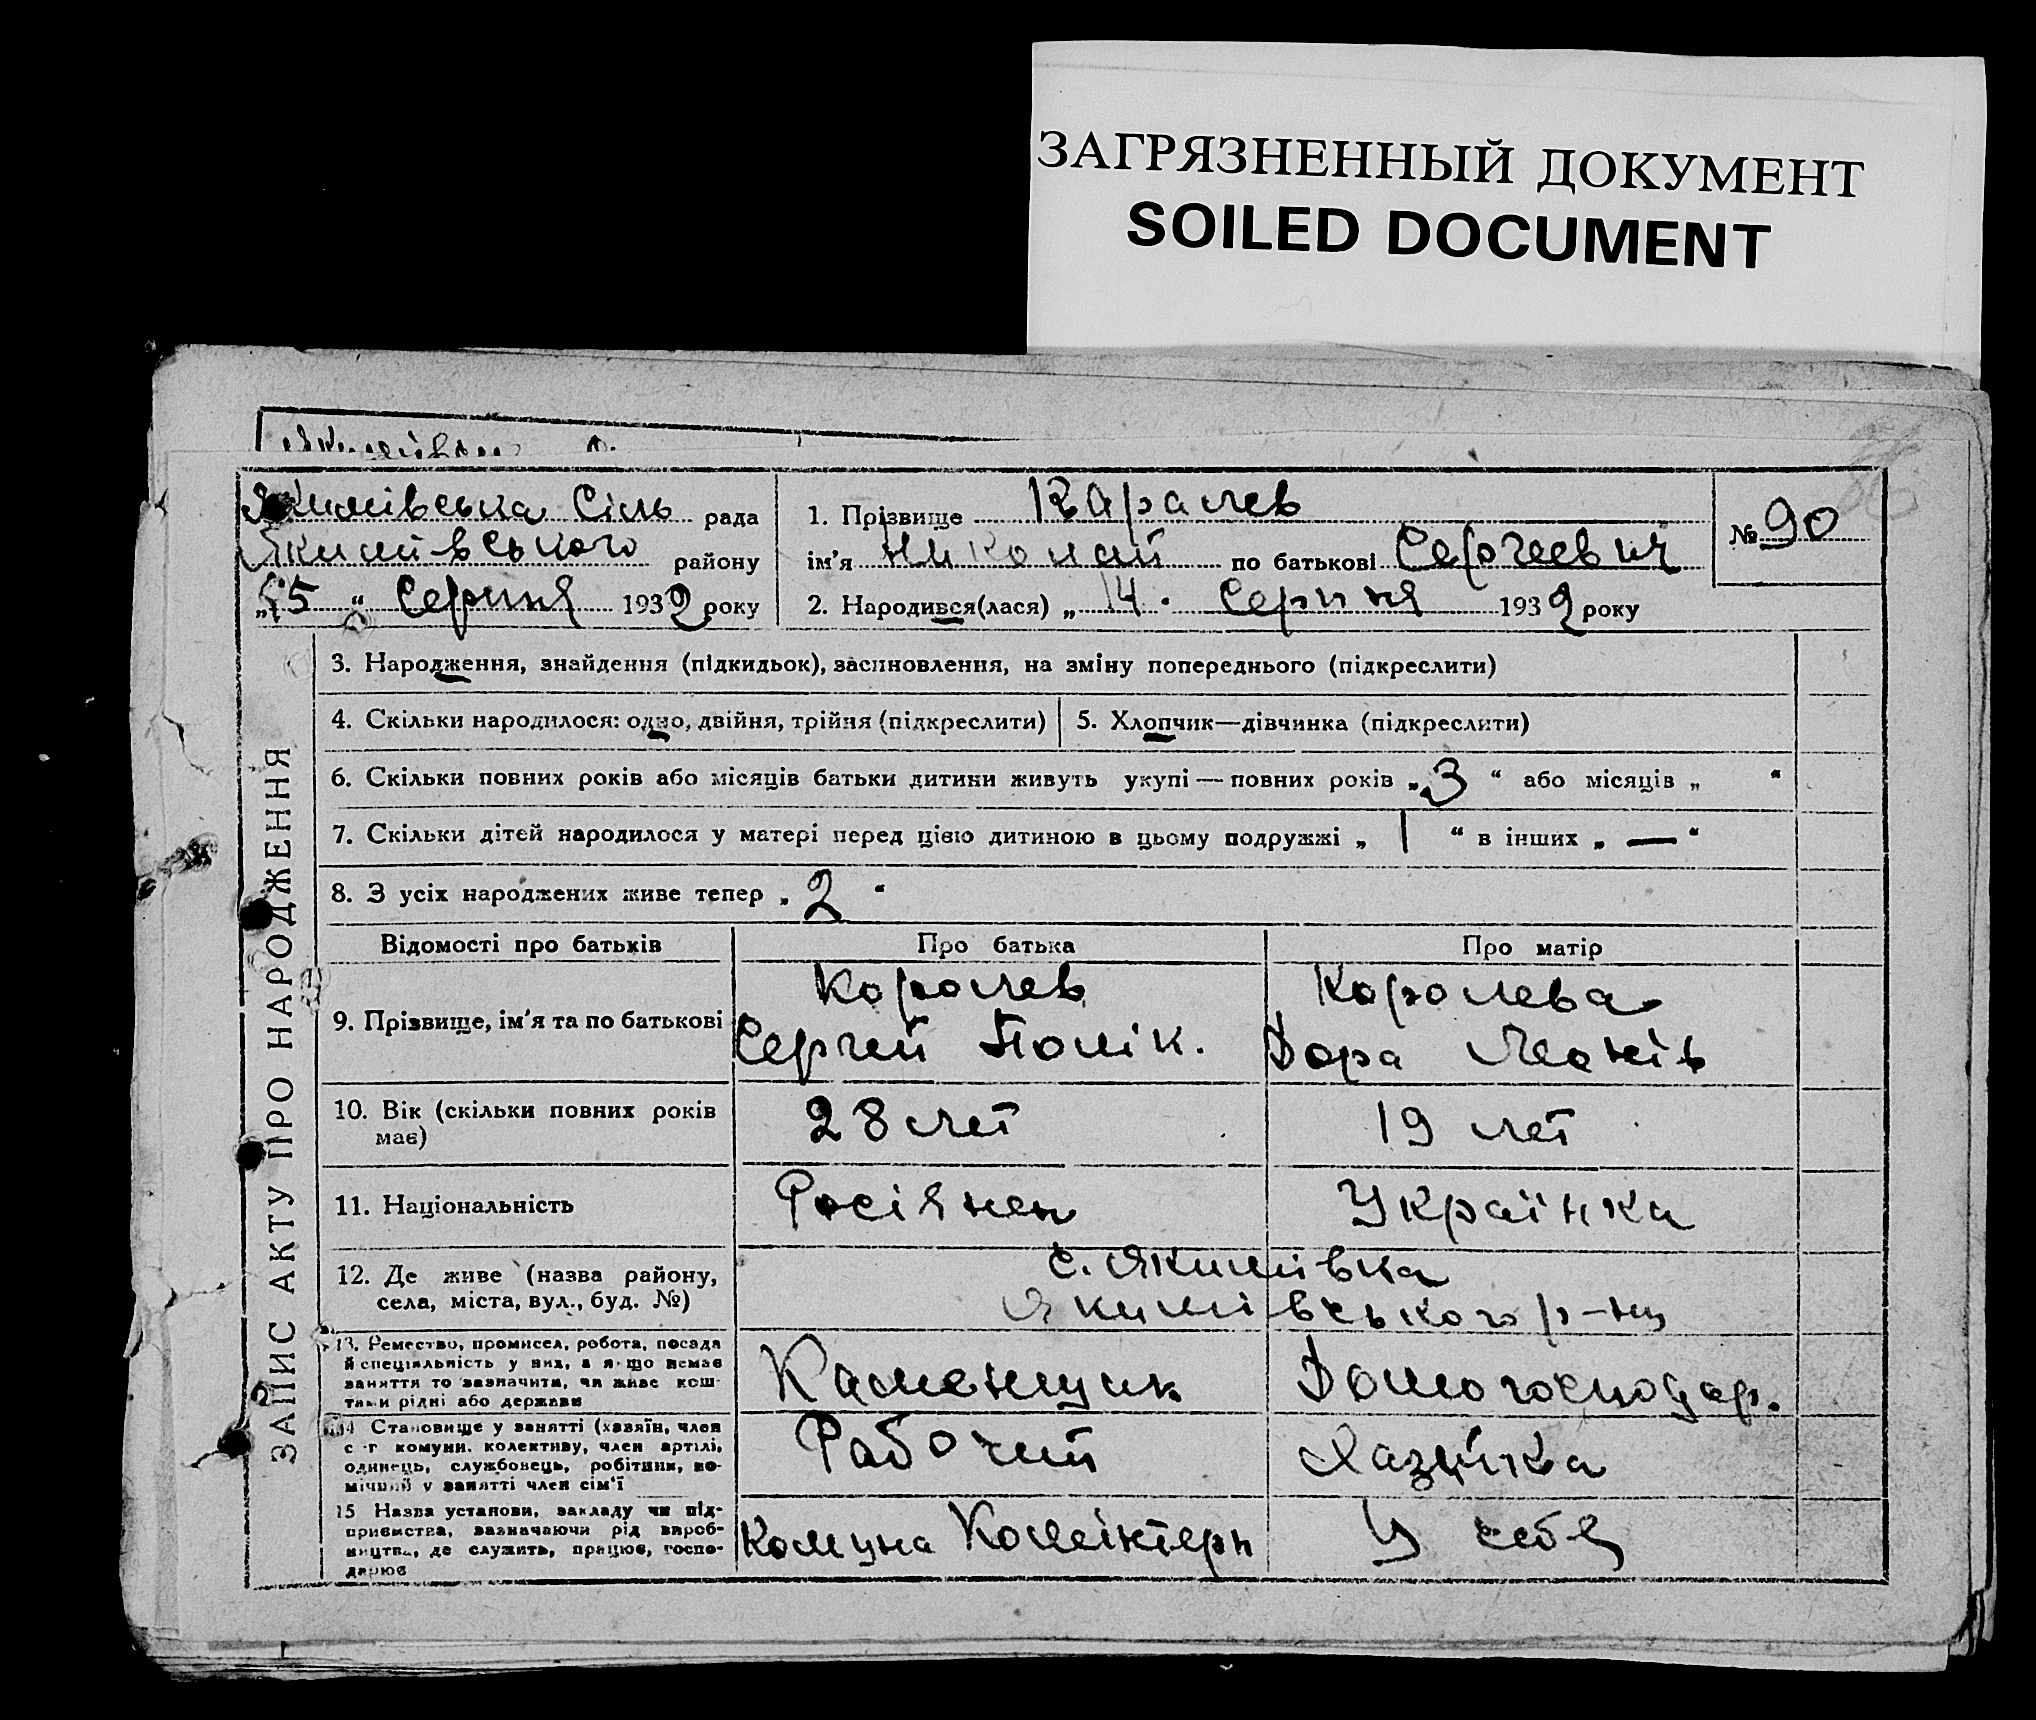 ЗАГРЯЗНЕННЫЙ ДОКУМЕНТ
SOILED DOCUMENT
Якимівська Сіль рада
Якимівського району
„15“ Серпня 1932 року
1. Прізвище Каралев
ім'я Николай по батькові Сергеевич
2. Народився(лася) „14. Серпня 1932 року
№ 90
ЗАПИС АКТУ ПРО НАРОДЖЕННЯ
3. Народження, знайдення (підкидьок), засиновлення, на зміну попереднього (підкреслити)
4. Скільки народилося: одно, двійня, трійня (підкреслити)
5. Хлопчик—дівчинка (підкреслити)
6. Скільки повних років або місяців батьки дитини живуть укупі — повних років „3“ або місяців „ “
7. Скільки дітей народилося у матері перед цією дитиною в цьому подружжі „1“ в інших „—“
8. З усіх народжених живе тепер „2“
Відомості про батьків Про батька Про матір
9. Прізвище, ім'я та по батькові
Королев
Сергей Полік.
Королева
Дора
10. Вік (скільки повних років
має)
28 лет
19 лет
11. Національність
Росіянен
Українка
12. Де живе (назва району,
села, міста, вул., буд. №)
с. Якимівка
Якимівського р-ну
13. Ремество, промисел, робота, посада
й спеціяльність у них, а якщо немає
заняття то зазначити, чи живе кош-
тами рідні або держави
Каменщик
Домогосподар.
14 Становище у занятті (хазяїн, член
с-г комуни. колективу, член артілі,
одинець, службовець, робітник, по-
мічний у занятті член сім'ї
Рабочий
Хазяйка
15 Назва установи, закладу чи під-
приємства, зазначаючи рід вироб-
ництва, де служить, працює, госпо-
дарює
Комуна Комінтерн
У себя